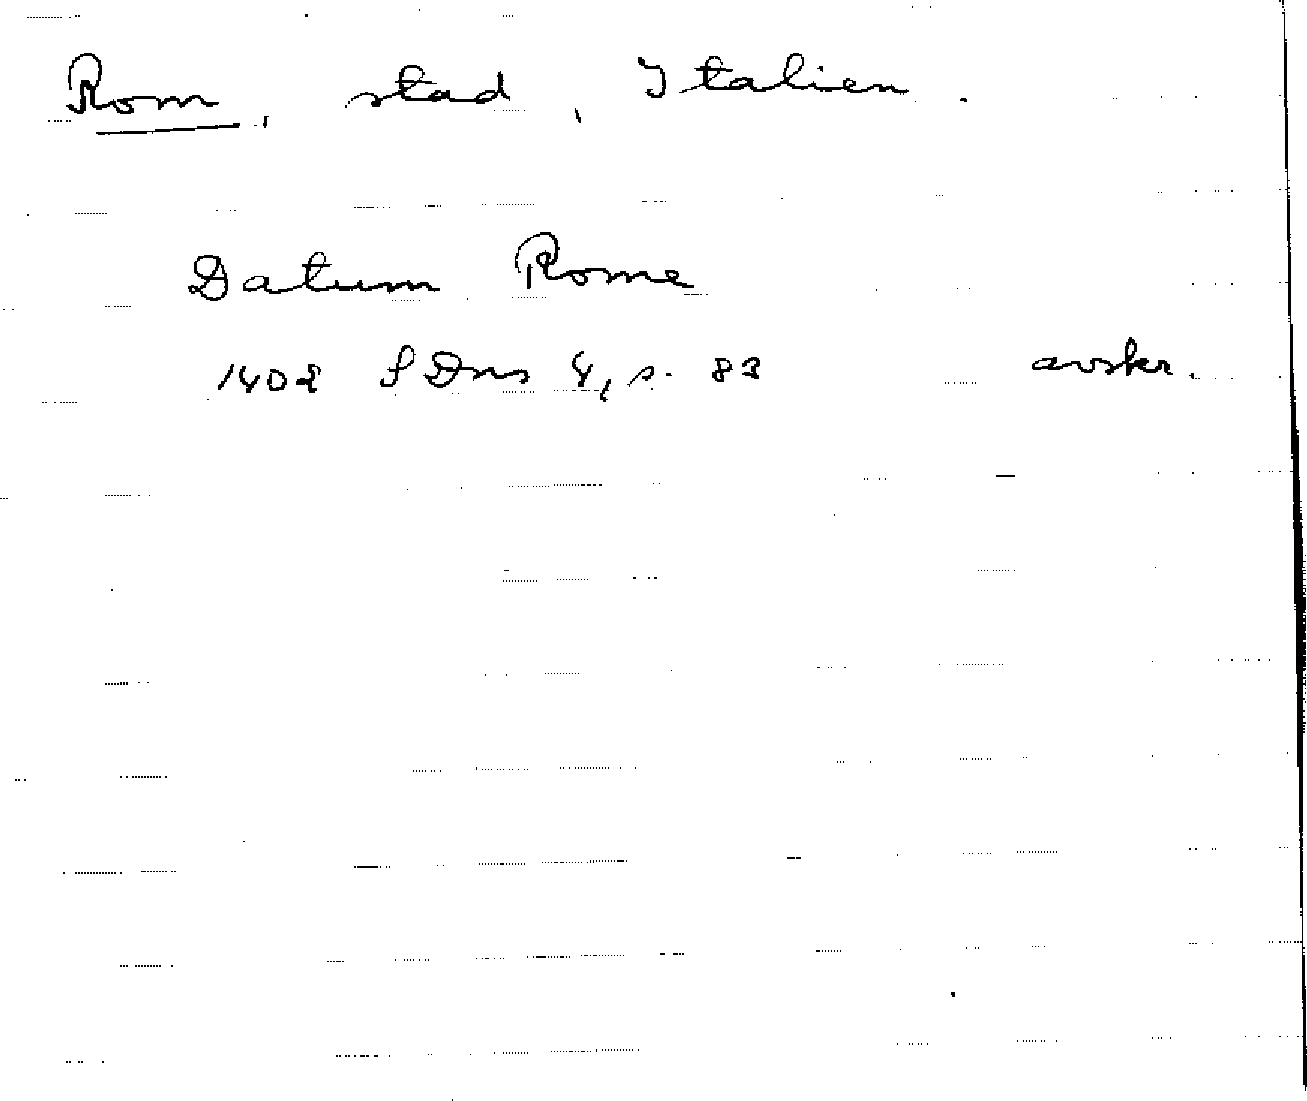 Rom, stad, Italien.
Datum Rome
1402 SDns 4, s. 83 avskr.